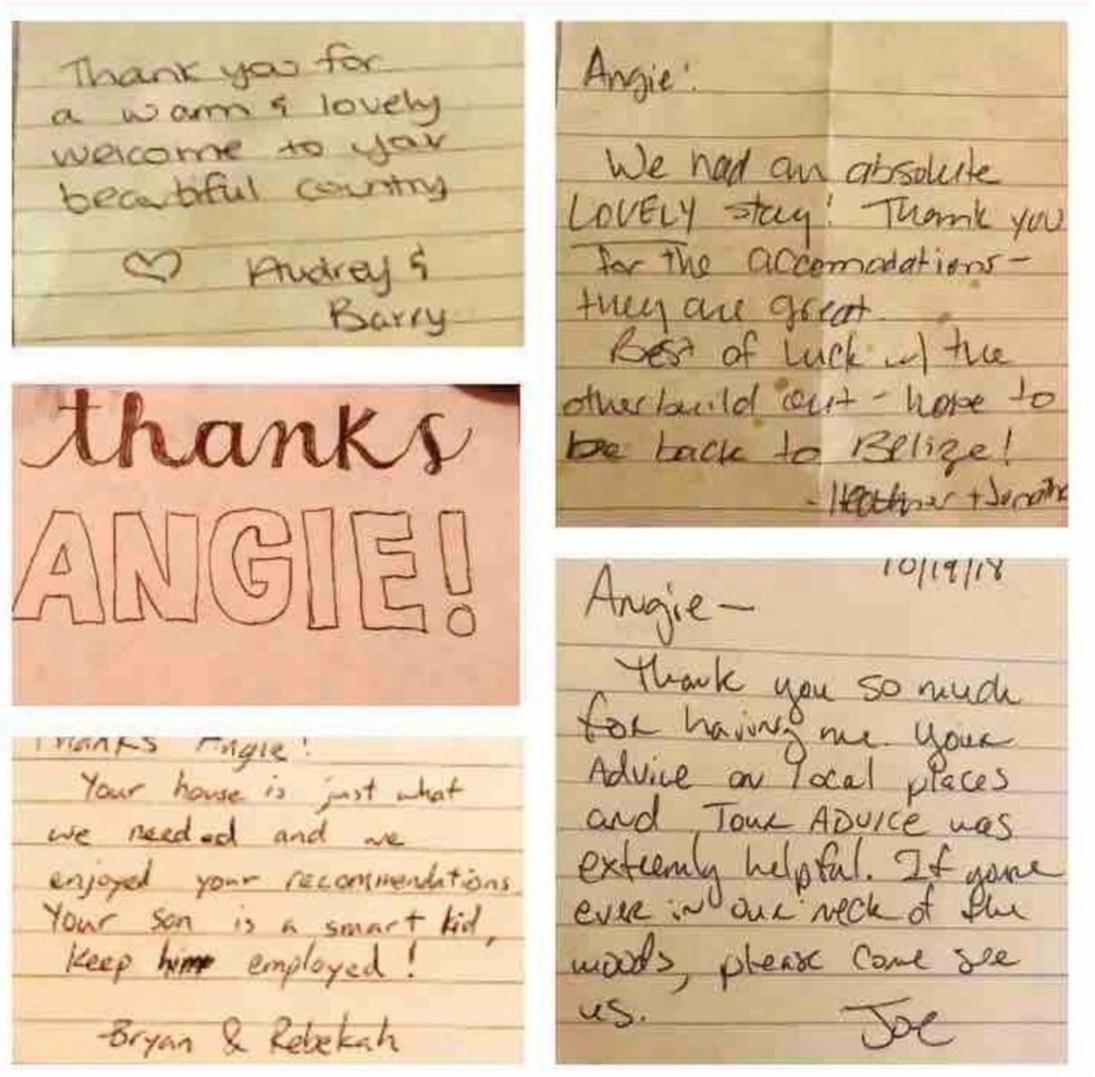 Thank you for
a warm & lovely
welcome to your
beautiful country
♡ Audrey &
Barry
thanks
ANGIE!
Thanks Angie!
Your house is just what
we needed and we
enjoyed your recommendations.
Your son is a smart kid,
keep him employed!
Bryan & Rebekah
Angie:
We had an absolute
LOVELY stay! Thank you
for the accomodations-
they are great.
Best of luck w/ the
other build out - hope to
be back to Belize!
- Heather +
10/19/18
Angie-
Thank you so much
for having me. Your
Advice on local places
and Tour ADVICE was
extremly helpful. If your
ever in our neck of the
woods, please come see
us. Joe